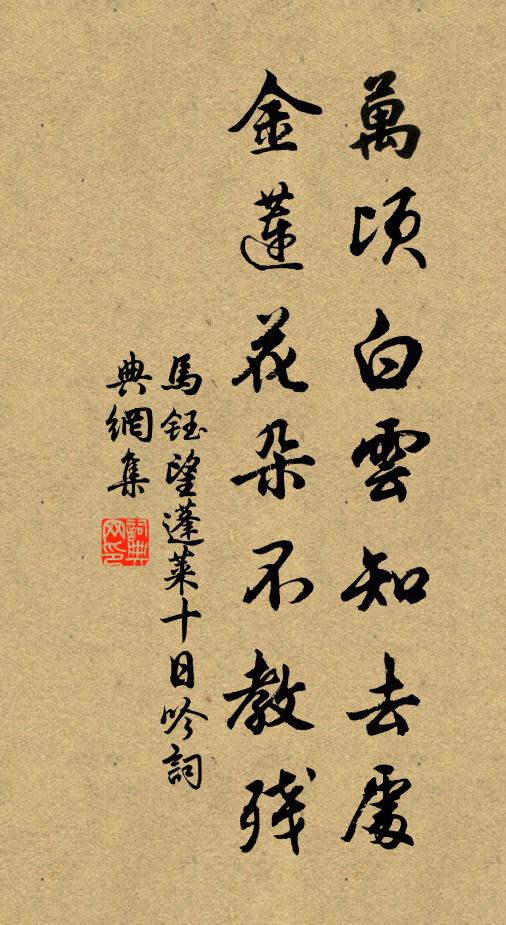 萬頃白雲知去處
金蓮花朵不教殘
馬鈺望蓬萊十日吟詞
典網集
詞典网印